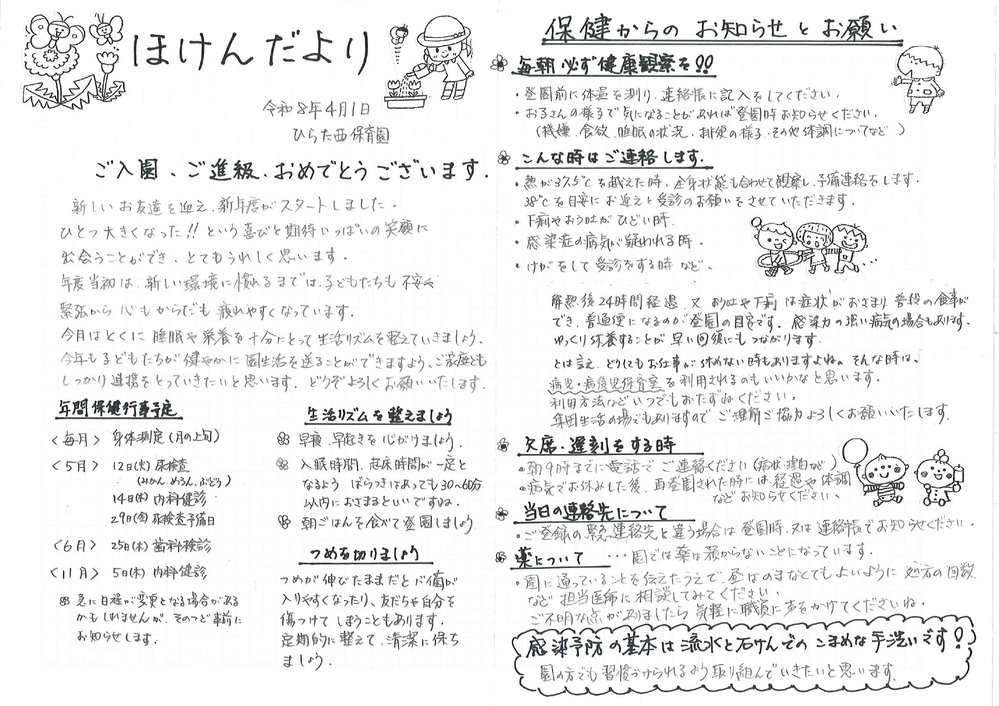 ほけんだより
令和8年4月1日
ひらた西保育園
ご入園、ご進級、おめでとうございます.
新しいお友達を迎え、新年度がスタートしました.
ひとつ大きくなった!!という喜びと期待いっぱいの笑顔に
出会うことができ、とてもうれしく思います.
年度当初は、新しい環境に慣れるまでは、子どもたちも不安や
緊張から心もからだも疲れやすくなっています.
今月はとくに睡眠や栄養を十分にとって生活リズムを整えていきましょう.
今年も子どもたちが健やかに園生活を送ることができますよう、ご家庭とも
しっかり連携をとっていきたいと思います. どうぞよろしくお願いいたします.
年間保健行事予定
<毎月> 身体測定(月の上旬)
<5月> 12日(火)尿検査
(みかん めろん、ぶどう)
14日(木) 内科健診
29日(金)尿検査予備日
<6月> 25日(木) 歯科検診
<11月> 5日(木) 内科健診
急に日程が変更となる場合がある
かもしれませんが、そのつど事前に
お知らせします.
生活リズムを整えましょう
早寝、早起きを心がけましょう.
入眠時間、起床時間が一定と
なるよう ばらつきはあっても30~60分
以内におさまるといいですね.
朝ごはんを食べて登園しましょう
つめを切りましょう
つめが伸びたままだとバイ菌が
入りやすくなったり、友だちや自分を
傷つけてしまうこともあります.
定期的に整えて、清潔に保ち
ましょう.
保健からの お知らせと お願い
毎朝必ず健康観察を!!
・登園前に体温を測り、連絡帳に記入をしてください.
・お子さんの様子で気になることがあれば登園時お知らせください.
(機嫌・食欲、睡眠の状況、排便の様子・その他体調についてなど)
こんな時はご連絡します.
・熱が37.5℃を越えた時、全身状態も合わせて観察し、予備連絡をします.
38℃を目安にお迎えと受診のお願いをさせていただきます.
・下痢やおう吐がひどい時.
・感染症の病気が疑われる時.
・けがをして受診をする時など.
解熱後24時間経過、又おう吐や下痢は症状がおさまり普段の食事が
でき、普通便になるのが登園の目安です. 感染力の強い病気の場合もあります.
ゆっくり休養することが早い回復にもつながります.
とは言え、どうしてもお仕事が休めない時もありますよね。そんな時は、
病児・病後児保育室を利用されるのもいいかなと思います.
利用方法などいつでもおたずねください.
集団生活の場でもありますのでご理解ご協力よろしくお願いいたします.
欠席・遅刻をする時
・朝9時までに電話でご連絡ください(症状・理由など)
・病気でお休みした後、再登園された時には、経過や体調
などお知らせください.
当日の連絡先について
・ご登録の緊急連絡先と違う場合は登園時、又は連絡帳でお知らせください.
薬について …園では薬は預からないことになっています.
・園に通っていることを伝えたうえで、昼はのまなくてもよいように処方の回数
など担当医師に相談してみてください.
ご不明な点がありましたら気軽に職員に声をかけてくださいね.
感染予防の基本は流水と石けんでのこまめな手洗いです!
園の方でも習慣づけられるよう取り組んでいきたいと思います.